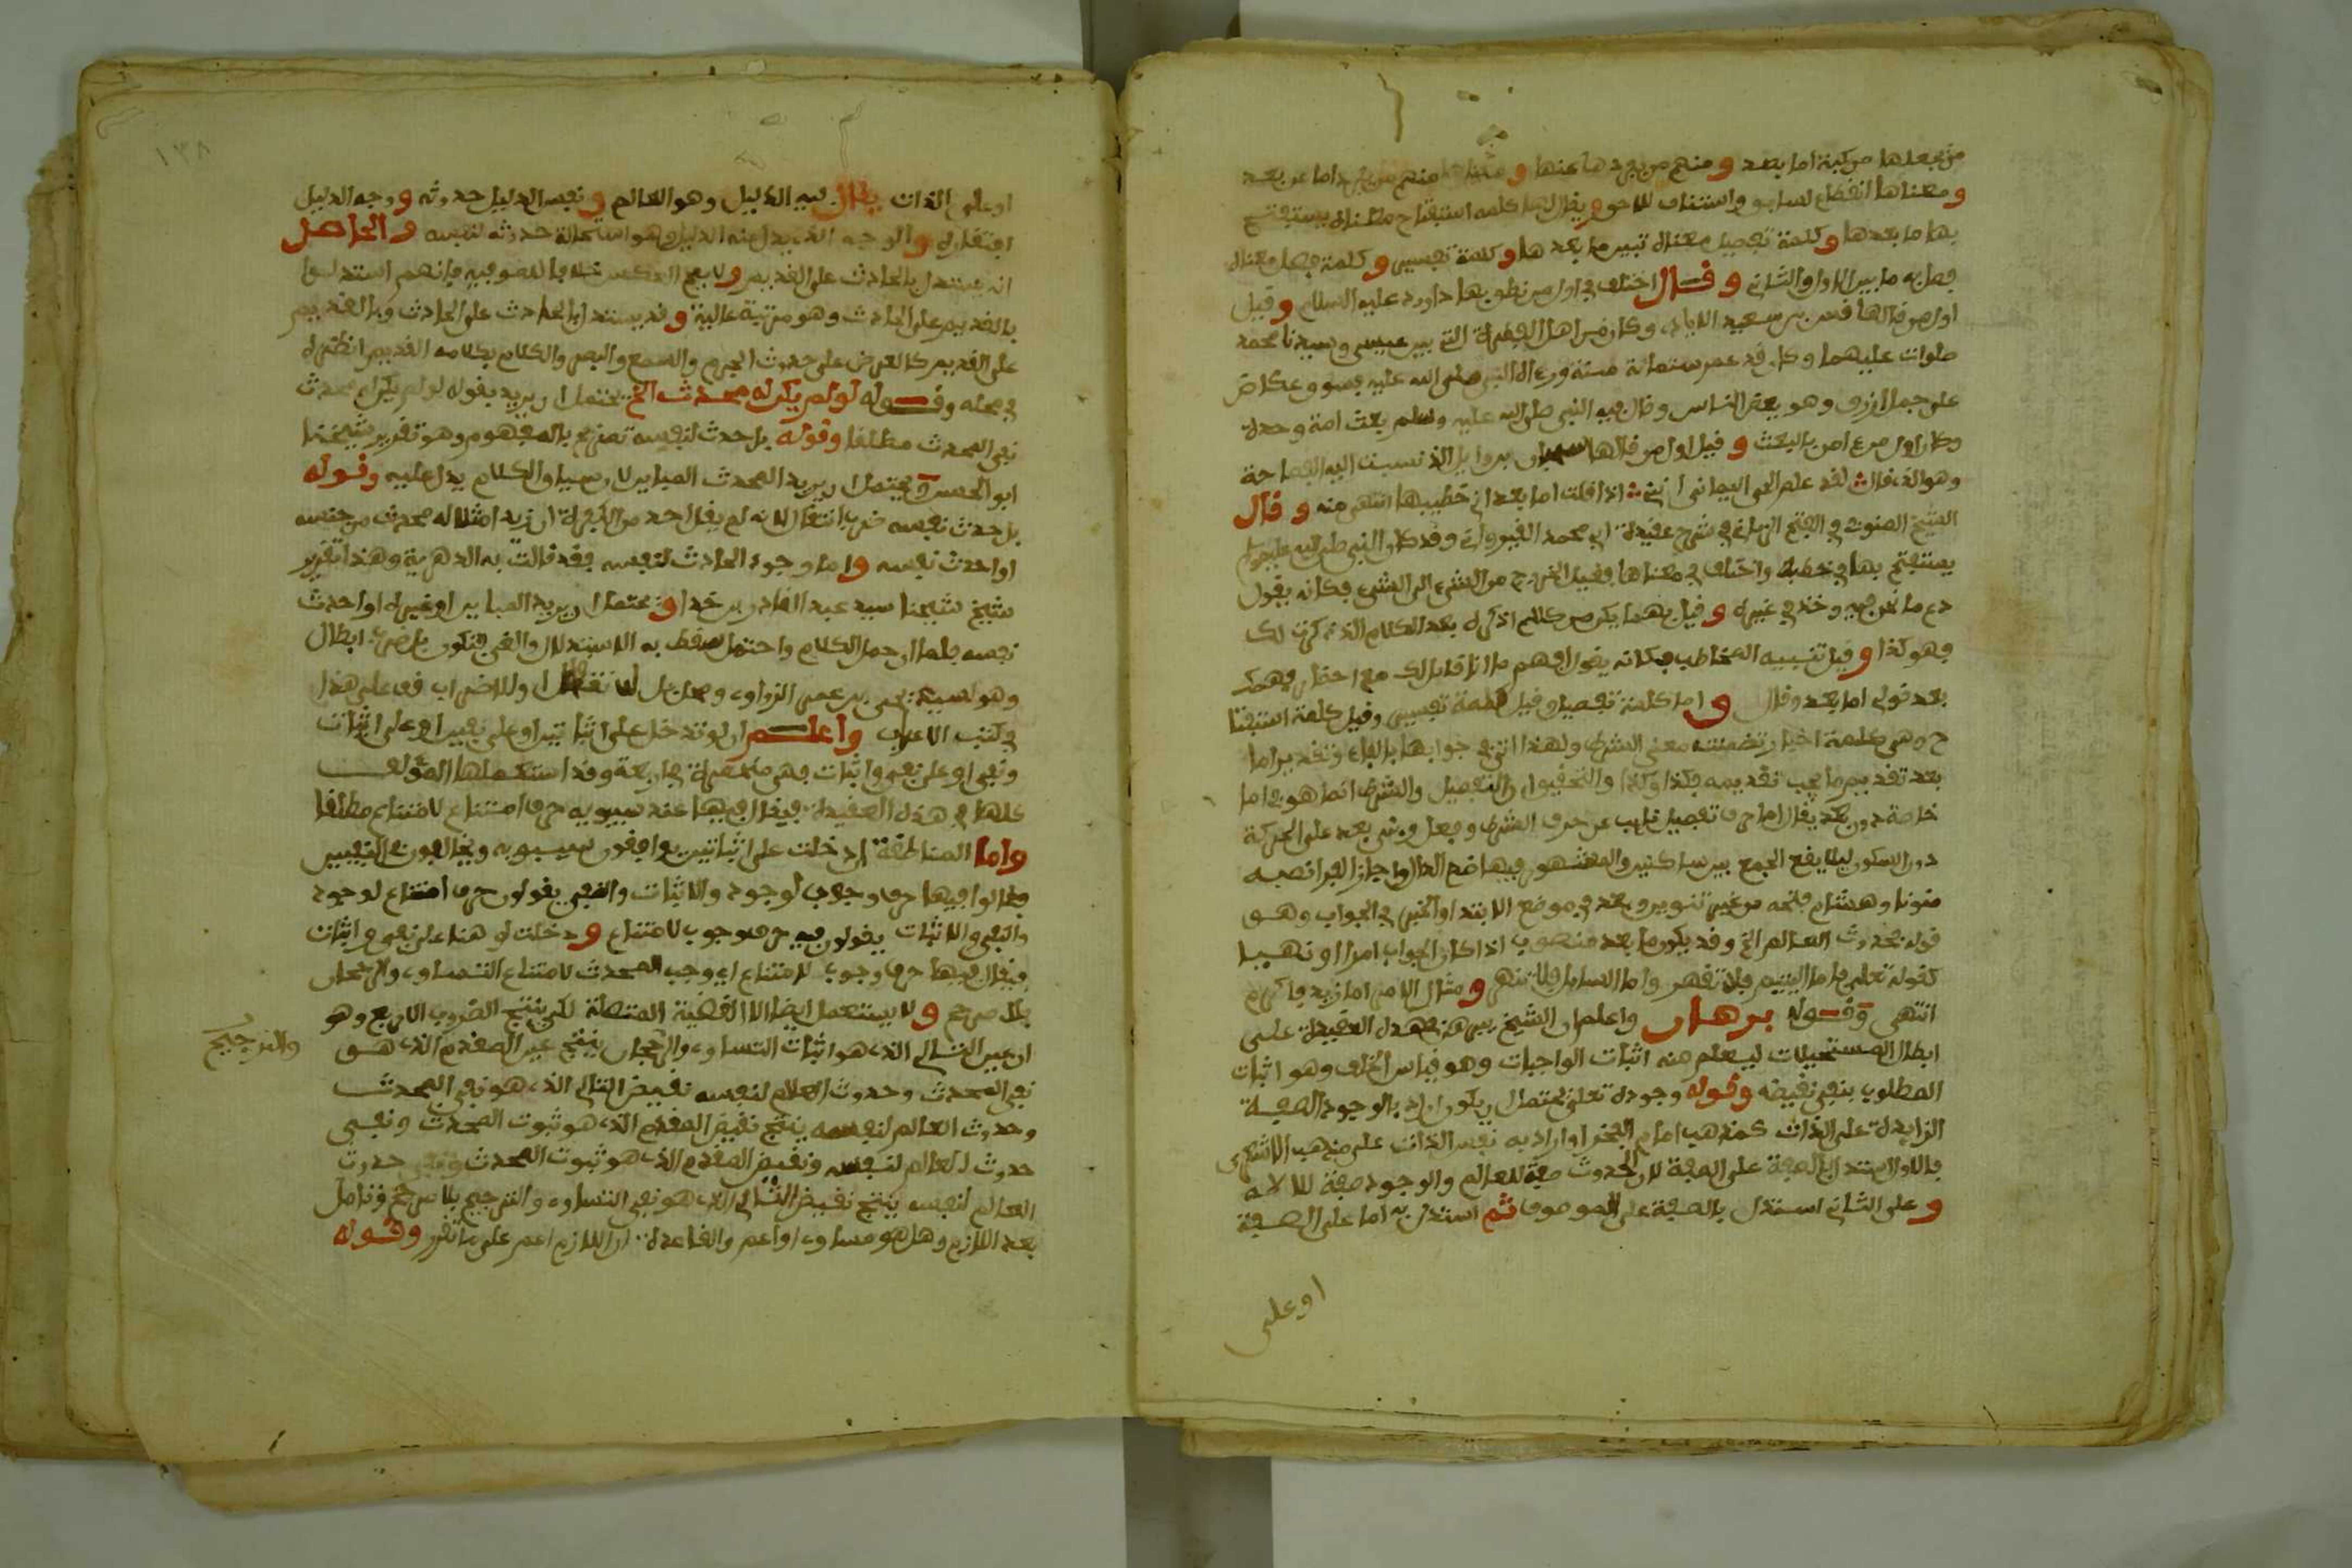 من يجعلها مركبة اما بعد ومنهم من يجردها عنها ومنهم من يجرد اما عن بعد
ومعناها انقطاع لسابق واستئناف للاحق ويقال لها كلمة استفتاح معناه يستفتح
بها ما بعدها وكلمة تفصيل معناه تبين ما بعدها وكلمة تفسير وكلمة فصل معناه
فصل به ما بين الاول والثاني وقال اختلف في اول من نطق بها داوود عليه السلام وقيل
اول من قالها قس بن سعيد الايادي وكان من اهل الفترة التي بين عيسى وسيدنا محمد
صلوات عليهما وكان قد عمر ستمائة سنة ورءاه النبي صلى الله عليه بسوق عكاض
على جمل ازرق وهو يعظ الناس وقال فيه النبي صلى الله عليه وسلم يبعث امة وحده
وكان اول من ءامن بالبعث وقيل اول من قالها سحبان بن وايل الذي نسبت اليه الفصاحة
وهو الذي قال لقد علم الحي اليماني انني اذا قلت اما بعد اني خطيبها انتهى منه وقال
الشيخ السنوسي في الفتح الرباني في شرح عقيدة ابي محمد القيرواني وقد كان النبي صلى الله عليه وسلم
يستفتح بها في خطبه واختلف في معناها فقيل الخروج من الشيء الى الشيء فكانه يقول
دع ما نحن فيه وخذ في غيره وقيل مهما يكن من كلام اذكره بعد الكلام الذي ذكرت لك
فهو كذا وقيل تنبيه المخاطب فكانه يقول افهم ما انا قايل لك مع احضار فهمك
بعد قولي اما بعد وقال واما كلمة تفصيل وقيل كلمة تفسير وقيل كلمة استفتا
ح وهي كلمة اخبار تضمنت معنى الشرط ولهذا اتي في جوابها بالفاء وتقدير اما
بعد تقديم ما يجب تقديمه فكذا وكذا والتحقيق ان التفصيل والشرط انما هو في اما
خاصة دون بعد يقال اما حرف تفصيل نايب عن حرف الشرط وفعل وبني بعد على الحركة
دون السكون ليلا يقع الجمع بين ساكنين والمشهور فيها ضم الدال واجاز الفرا نصبه
منونا وهشام فتحه من غير تنوين وبعد في موضع الابتدا والخبر في الجواب وهو
قوله بحدوث العالم الخ وقد يكون ما بعد منصوب اذا كان الجواب امرا او نهيا
كقوله تعالى فاما اليتيم فلا تقهر واما السايل فلا تنهر ومثال الامر اما زيد فاكرم
انتهى وقوله برهان واعلم ان الشيخ بنى هذه العقيدة على
ابطال المستحيلات ليعلم منه اثبات الواجبات وهو قياس الخلف وهو اثبات
المطلوب بنفي نقيضه وقوله وجوده تعلى يحتمل ان يكون اراد بالوجود الصفة
الزايدة على الذات كمذهب امام الفخر او اراد به نفس الذات على مذهب الاشعري
فالاول استدل بالصفة على الصفة لان الحدوث صفة للعالم والوجود صفة للالاه
وعلى الثاني استدل بالصفة على الموصوف ثم استدل به اما على الصفة
او على
١٣٨
او على الذات يقال فيه الدليل وهو العالم ونفس الدليل حدوثه ووجه الدليل
افتقاره والوجه الذي يدل منه الدليل وهو استحالة حدوثه لنفسه والحاصل
انه يستدل بالحادث على القديم ولا يصح العكس خلافا للصوفيه فانهم استدلوا
بالقديم على الحادث وهو مرتبة عالية وقد يستدل بالحادث على الحادث وبالقديم
على القديم كالعرض على حدوث الجرم والسمع والبصر والكلام بكلامه القديم انظره
في محله وقوله لو لم يكن له محدث الخ يحتمل ان يريد بقوله لو لم يكن له محدث
نفي المحدث مطلقا وقوله بل حدث لنفسه تصريح بالمفهوم وهو تقرير شيخنا
ابو الحسن ويحتمل ان يريد المحدث المباين لا سيما والكلام يدل عليه وقوله
بل حدث نفسه ضرب انتقال لانه لم يقل احد من الكفرة ان زيد امثلا له محدث من جنسه
او احدث نفسه واما وجود الحادث لنفسه فقد قالت به الدهرية وهذا تقرير
شيخ شيخنا سيد عبد القادر بن خدا ويحتمل ان يريد المباين او غيره او احدث
نفسه فلما ان حمل الكلام واحتمل سقط به الاستدلال والغي فتكون بل ابطال
وهو لسيد يحيى بن عمر الزواوي ومحل بل لا نتقال وللاضراب في على هذا
في كتب الاعراب واعلم ان لو تدخل على اثباتين او على نفيين او على اثبات
ونفي او على نفي واثبات فهي منحصرة في اربعة وقد استعملها المؤلف
كلها في هذه العقيدة فيقال فيها عند سيبويه حرف امتناع لامتناع مطلقا
واما المناطقة ان دخلت على اثباتين يوافقون سيبويه ويخالفون في النفيين
فقالوا فيها حرف وجوب لوجود والاثبات والنفي يقولون حرف امتناع لوجود
والنفي والاثبات يقولون فيه حرف وجوب لامتناع ودخلت لو هنا على نفي واثبات
فيقال فيها حرف وجوب لامتناع اي وجب المحدث لامتناع التساوي والرجحان
بلا مرجح ولا يستعمل ايضا الا القضية المتصلة لكن ينتج الضروب الاربع وهو
ان عين التالي الذي هو اثبات التساوي والرجحان ينتج عين المقدم الذي هو
والترجيح
نفي المحدث وحدوث العالم لنفسه نقيض التالي الذي هو نفي المحدث
وحدوث العالم لنفسه ينتج نقيض المقدم الذي هو ثبوت المحدث ونفي
حدوث العالم لنفسه ونقيض المقدم الذي هو ثبوت المحدث ونفي حدوث
العالم لنفسه ينتج نقيض التالي الذي هو نفي التساوي والترجيح بلا مرجح وتامل
بعد اللازم وهل هو مساوي او اعم والقاعدة ان اللازم اعم على ما تقرر وقوله